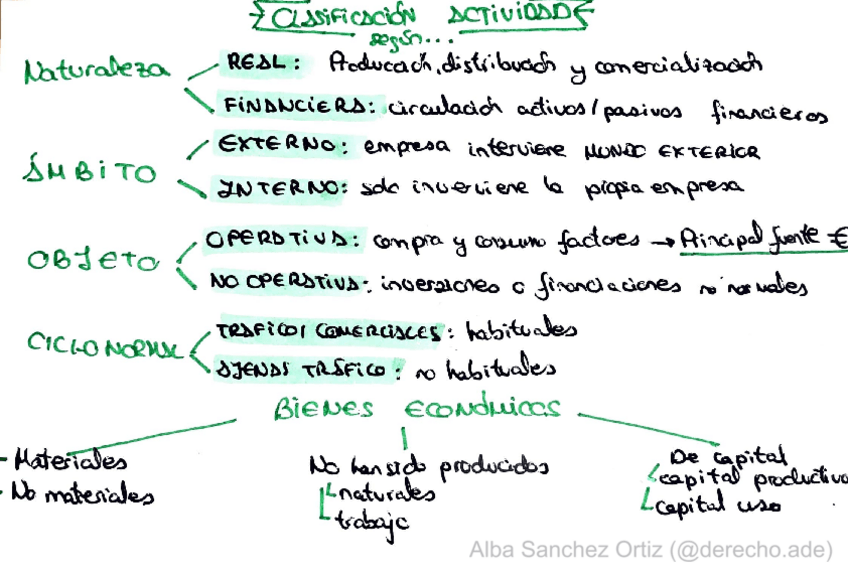 CLASIFICACIÓN ACTIVIDAD
según...
Naturaleza
REAL: Producción, distribución y comercialización
FINANCIERA: circulación activos/pasivos financieros
ÁMBITO
EXTERNO: empresa interviene MUNDO EXTERIOR
INTERNO: solo interviene la propia empresa
OBJETO
OPERATIVA: compra y consumo factores → Principal fuente €
NO OPERATIVA: inversiones o financiaciones no normales
CICLO NORMAL
TRÁFICO/COMERCIALES: habituales
AJENAS TRÁFICO: no habituales
BIENES ECONÓMICOS
- Materiales
- No materiales
No han sido producidos
naturales
trabajo
De capital
capital productivo
capital uso
Alba Sanchez Ortiz (@derecho.ade)